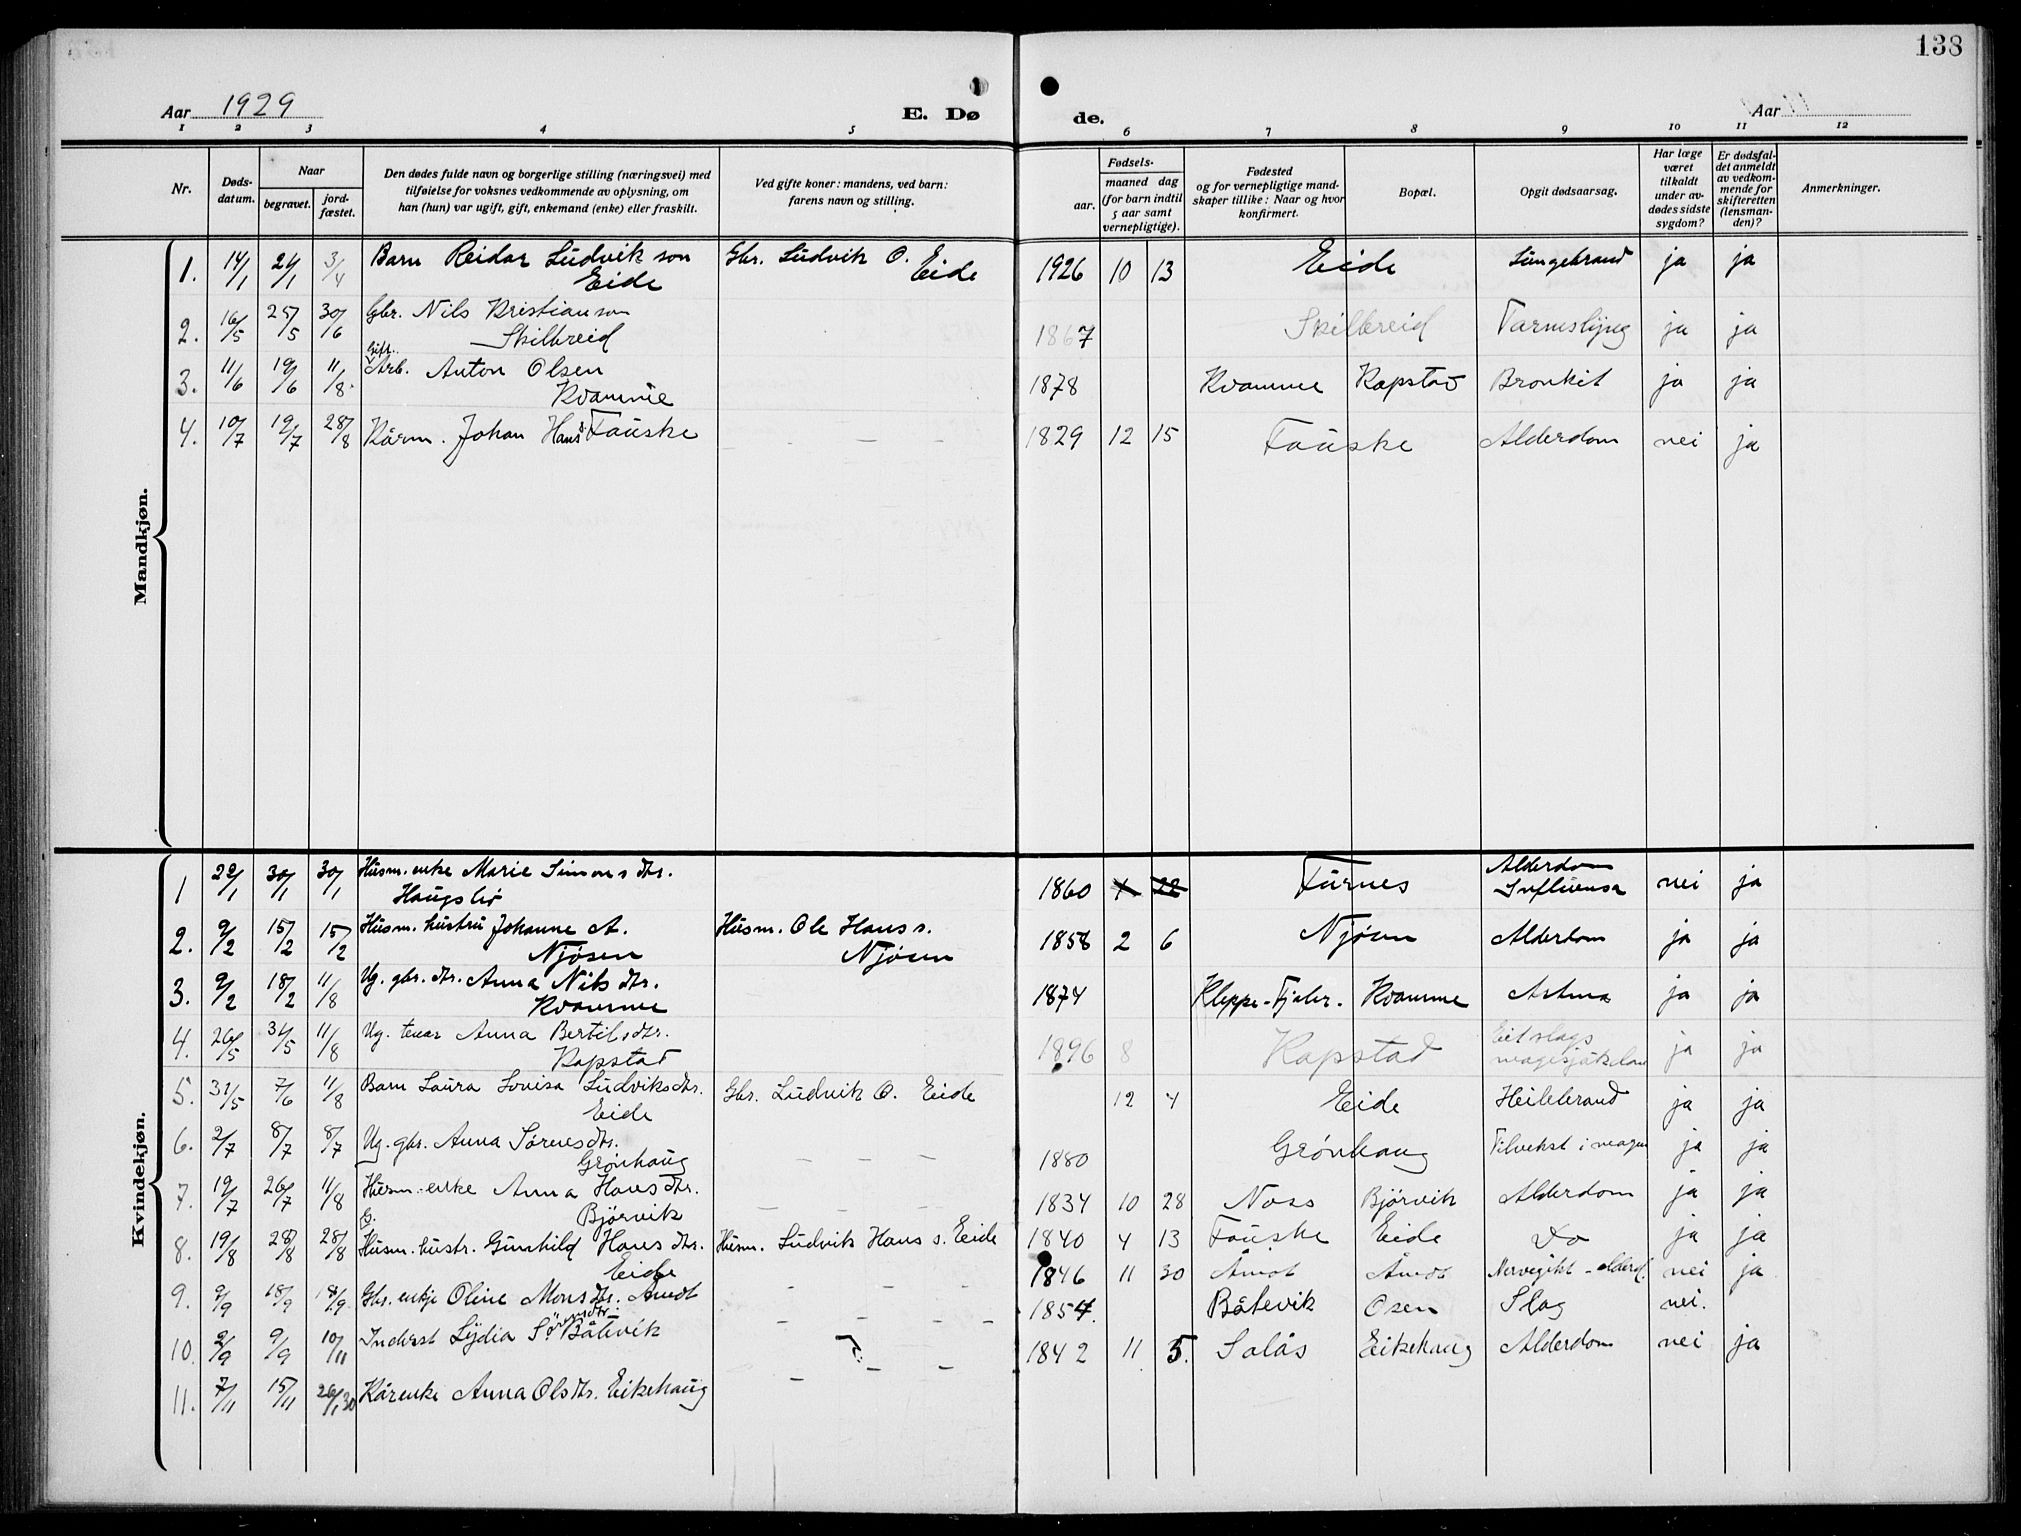 138
Aar 1929
E. Dø
de.
Aar
1 2 3 4 5 6 7 8 9 10 11 12
Nr.
Døds-
datum.
Naar
begravet.
jord-
fæstet.
Den dødes fulde navn og borgerlige stilling (næringsvei) med
tilføielse for voksnes vedkommende av oplysning, om
han (hun) var ugift, gift, enkemand (enke) eller fraskilt.
Ved gifte koner: mandens, ved barn:
farens navn og stilling.
Fødsels-
aar.
maaned dag
(for barn indtil
5 aar samt
vernepligtige).
Fødested
og for vernepligtige mand-
skaper tillike: Naar og hvor
konfirmert.
Bopæl.
Opgit dødsaarsag.
Har læge
været
tilkaldt
under av-
dødes sidste
sygdom?
Er dødsfal-
det anmeldt
av vedkom-
mende for
skifteretten
(lensman-
den)?
Anmerkninger.
Mandkjøn.
1. 14/1 24/1 3/4 Barn Reidar Ludvikson Gbr. Ludvik O. 1926 10 13 Eide Lungebrand ja ja
Eide Eide
2. 16/5 25/5 30/6 Gbr. Nils Kristianson 1867 Skilbreid Tarmslyng ja ja
Skilbreid
Gift.
3. 11/6 19/6 11/8 Arb. Anton Olsen 1878 Kvamme Rapstad Bronkit ja ja
Kvamme
4. 10/7 19/7 28/8 Kårm. Johan Hans s. Fauske — — — 1829 12 15 Fauske Alderdom nei ja
Kvindekjøn.
1 22/1 30/1 30/1 Husm. enke Marie Simonsdtr. 1860 1 22 Furnes Alderdom
Influensa nei ja
Haugslir
2. 9/2 15/2 15/2 Husm. hustru Johanne A. Husm. Ole Hans s. 1858 2 6 Njøsen Alderdom ja ja
Njøsen Njøsen
3. 9/2 18/2 11/8 Ug. gbr. dtr. Anna Nilsdtr. 1874 Kleppe-Fjaler. Kvamme Astma ja ja
Kvamme
4. 26/5 31/5 11/8 Ug. tenar Anna Bertilsdtr. 1896 8 Rapstad Eit slags
magesjukdom ja ja
Rapstad
5. 31/5 7/6 11/8 Barn Laura Lovisa Ludviksdtr. Gbr. Ludvik O. Eide 12 4 Eide Heilebrand ja ja
Eide
6. 2/7 8/7 8/7 Ug. gbr. Anna Sørensdtr. — — — 1880 Grønhaug Tilvekst i magen ja ja
Grønhaug
7. 19/7 26/7 11/8 Husm. enke Anna Hansdtr. — — — 1834 10 28 Noss Bjørvik Alderdom ja ja
Bjørvik
G.
8. 19/8 28/8 28/8 Husm. hustr. Gunhild Hansdtr. Husm. Ludvik Hans s. Eide 1840 4 13 Fauske Eide Do ja ja
Eide
9. 9/9 18/9 18/9 Gbr. enkje Oline Monsdtr. Åmot — — — 1846 11 30 Åmot Åmot Nervegikt - alderd. nei ja
10. 2/9 9/9 10/11 Inderst Lydia Sørensdtr. Båtevik — — — 1854. Båtevik Osen Slag nei.
11. 7/11 15/11 26/1 30 Kårenke Anna Olsdtr. Eikehaug — — — 1842 11 5. Salås Eikehaug Alderdom nei ja